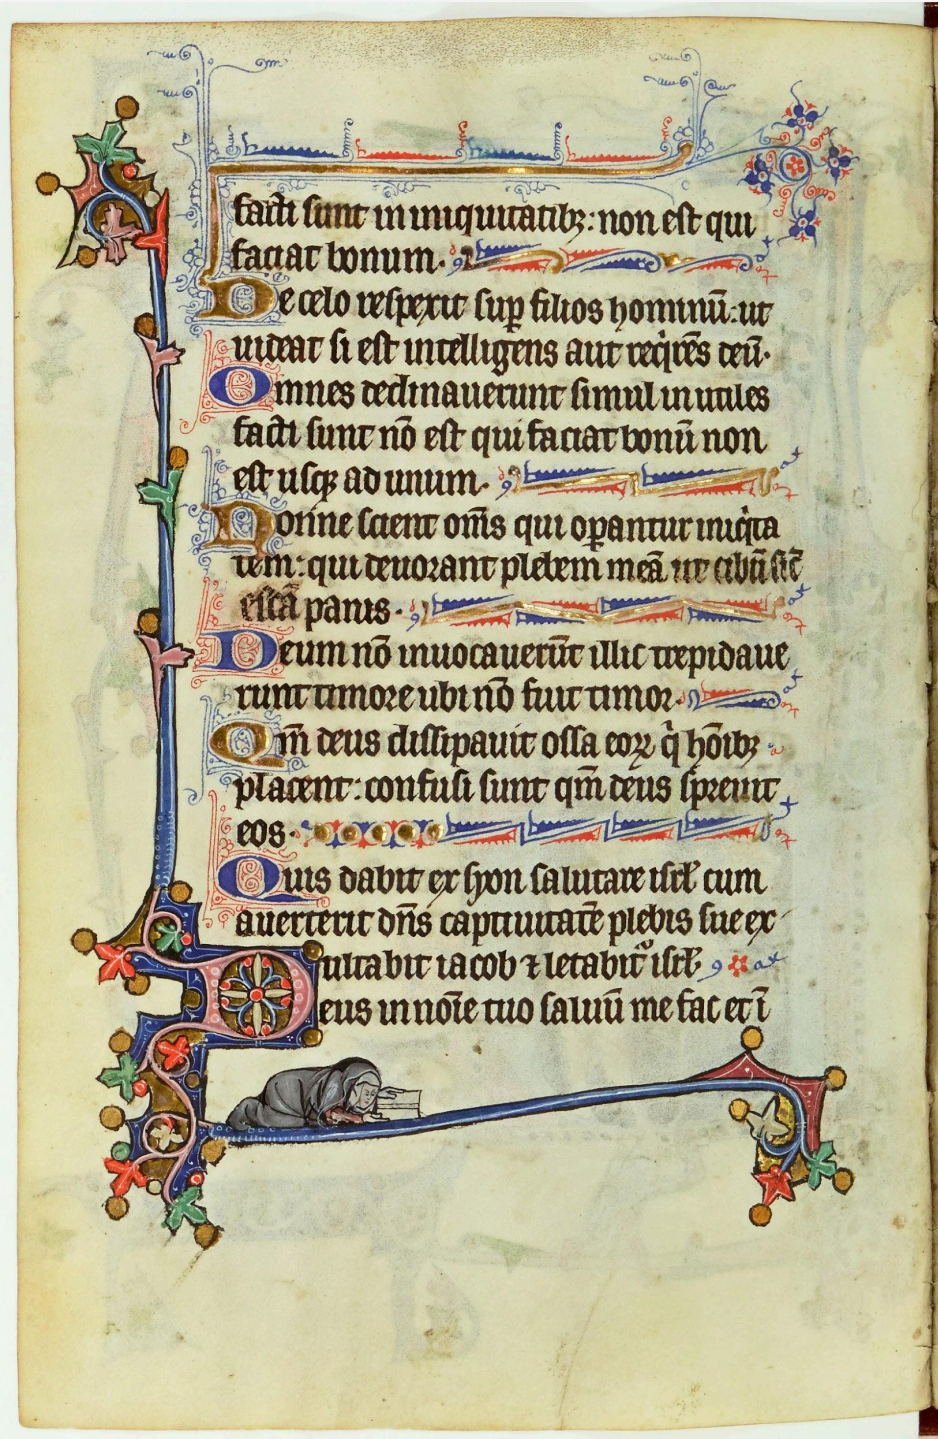 facti sunt in iniquitatibꝫ: non est qui
faciat bonum.
De celo respexit suꝑ filios hominū: ut
uideat si est intelligens aut reqͥrēs deū.
Omnes declinauerunt simul inutiles
facti sunt nō est qui faciat bonū non
est usqꝫ ad unum.
Nonne scient om̄s qui oꝑantur iniqͥta
tem: qui deuorant plebem meā ut cibū sic̄
escā panis.
Deum nō inuocauerūt illic trepidaue
runt timore ubi nō fuit timor.
Qm̄ deus dissipauit ossa eoꝝ qͥ hōibꝫ
placent: confusi sunt qm̄ deus spreuit
eos.
Quis dabit ex syon salutare isrł cum
auerterit dn̄s captiuitatē plebis sue ex
ultabit iacob ⁊ letabitͦ isrł
Deus in noīe tuo saluū me fac et ī